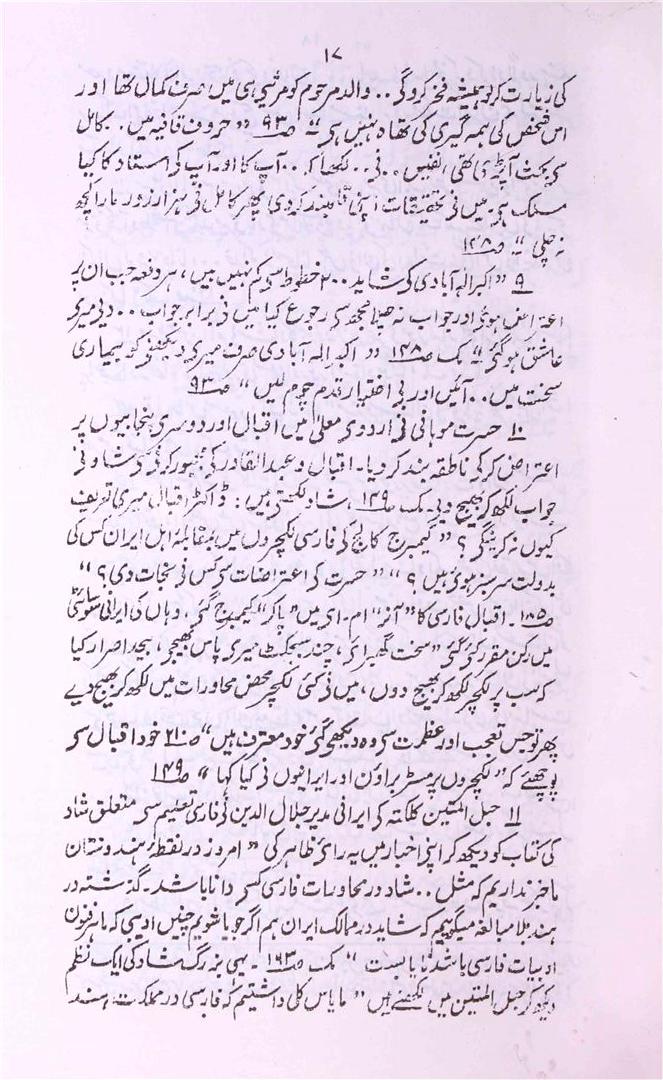 ۱۷
کی زیارت کرد ہمیشہ فخر کروگی . . والد مرحوم کو مرثیی ہی میں صرف کمال تھا اور
اس شخص کی ہمہ گیری کی تھاہ نہیں ہی " صـ ۹۳ " حروف قافیہ میں . کامل
سی بحث آپڑی تھی انھیں . . نی . . لکھا کہ . . آپ کا اور آپ کی استاد کا کیا
مسلک ہی میں نی تحقیقات قلمبند کردی ، پھر کامل نی ہزار زور مارا کچھ
نہ چلی " صـ ۱۴۸
۹ " اکبر الہ آبادی کی شاید ۲۰۰ خطوط سی کم نہیں ہیں ، ہر دفعہ جب ان پر
اعتراض ہوئی اور جواب نہ مجھ سی رجوع کیا میں نی برابر جواب . . دیی میری
عاشق ہو گئی " مک صـ ۱۴۸ " اکبر الہ آبادی صرف میری دیکھنی کو بیماری
سخت میں . . آئیں اور بی اختیار قدم چوم لیں " صـ ۹۳
۱۰ حسرت موہانی نی اردوی معلی میں اقبال اور دوسری پنجابیوں پر
اعتراض کرکی ناطقہ بند کردیا ۔ اقبال و عبد القادر کی مجبور کرنی سی شاد نی
جواب لکھ کر بھیج دیی ۔ مک صـ ۱۴۹ ، شاد لکھتی ہیں : ڈاکٹر اقبال میری تعریف
کیوں نہ کرینگی ؟ " کیمبرج کالج کی فارسی لکچروں میں بمقابلۂ اہل ایران کس کی
بدولت سر سبز ہوئی ہیں ؟ " " حسرت کی اعتراضات سی کس نی نجات دی ؟ "
صـ ۱۸۵ ۔ اقبال فارسی کا " آنر " ام ۔ ای میں " پاکر " کیمبرج گئی ، وہاں کی ایرانی سوسائٹی
میں رکن مقرر کئی گئی " سخت گھبرائی ، چند سبجکٹ میری پاس بھیجی ، بیحد اصرار کیا
کہ سب پر لکچر لکھ کر بھیج دوں ، میں نی کئی لکچر محض محاورات میں لکھ کر بھیج دیے
پھر تو جس تعجب اور عظمت سی وہ دیکھی گئی خود معترف ہیں " صـ ۲۱۰ خود اقبال سی
پوچھئی کہ " لکچروں پر مسٹر براؤن اور ایرانیوں نی کیا کہا " صـ ۱۴۹
۱۱ حبل المتین کلکتہ کی ایرانی مدیر جلال الدین نی فارسی تعلیم سی متعلق شاد
کی کتاب کو دیکھ کر اپنی اخبار میں یہ رائی ظاہر کی " امروز در نقطۂ ہندوستان
ما خبر نداریم کہ مثل . . شاد در محاورات فارسی کسی دانا باشد ۔ گذشتہ در
ہند بلا مبالغہ میگوییم کہ شاید در ممالک ایران ہم اگر جویا شویم چنیں ادیبی کہ ماہر فنون
ادبیات فارسی باشد نایابست " مک صـ ۱۶۳ ۔ یہی بزرگ شاد کی ایک نظم
دیکھ کر حبل المتین میں لکھتے ہیں " ما یاس کلی داشتیم کہ فارسی در مملکت ہند